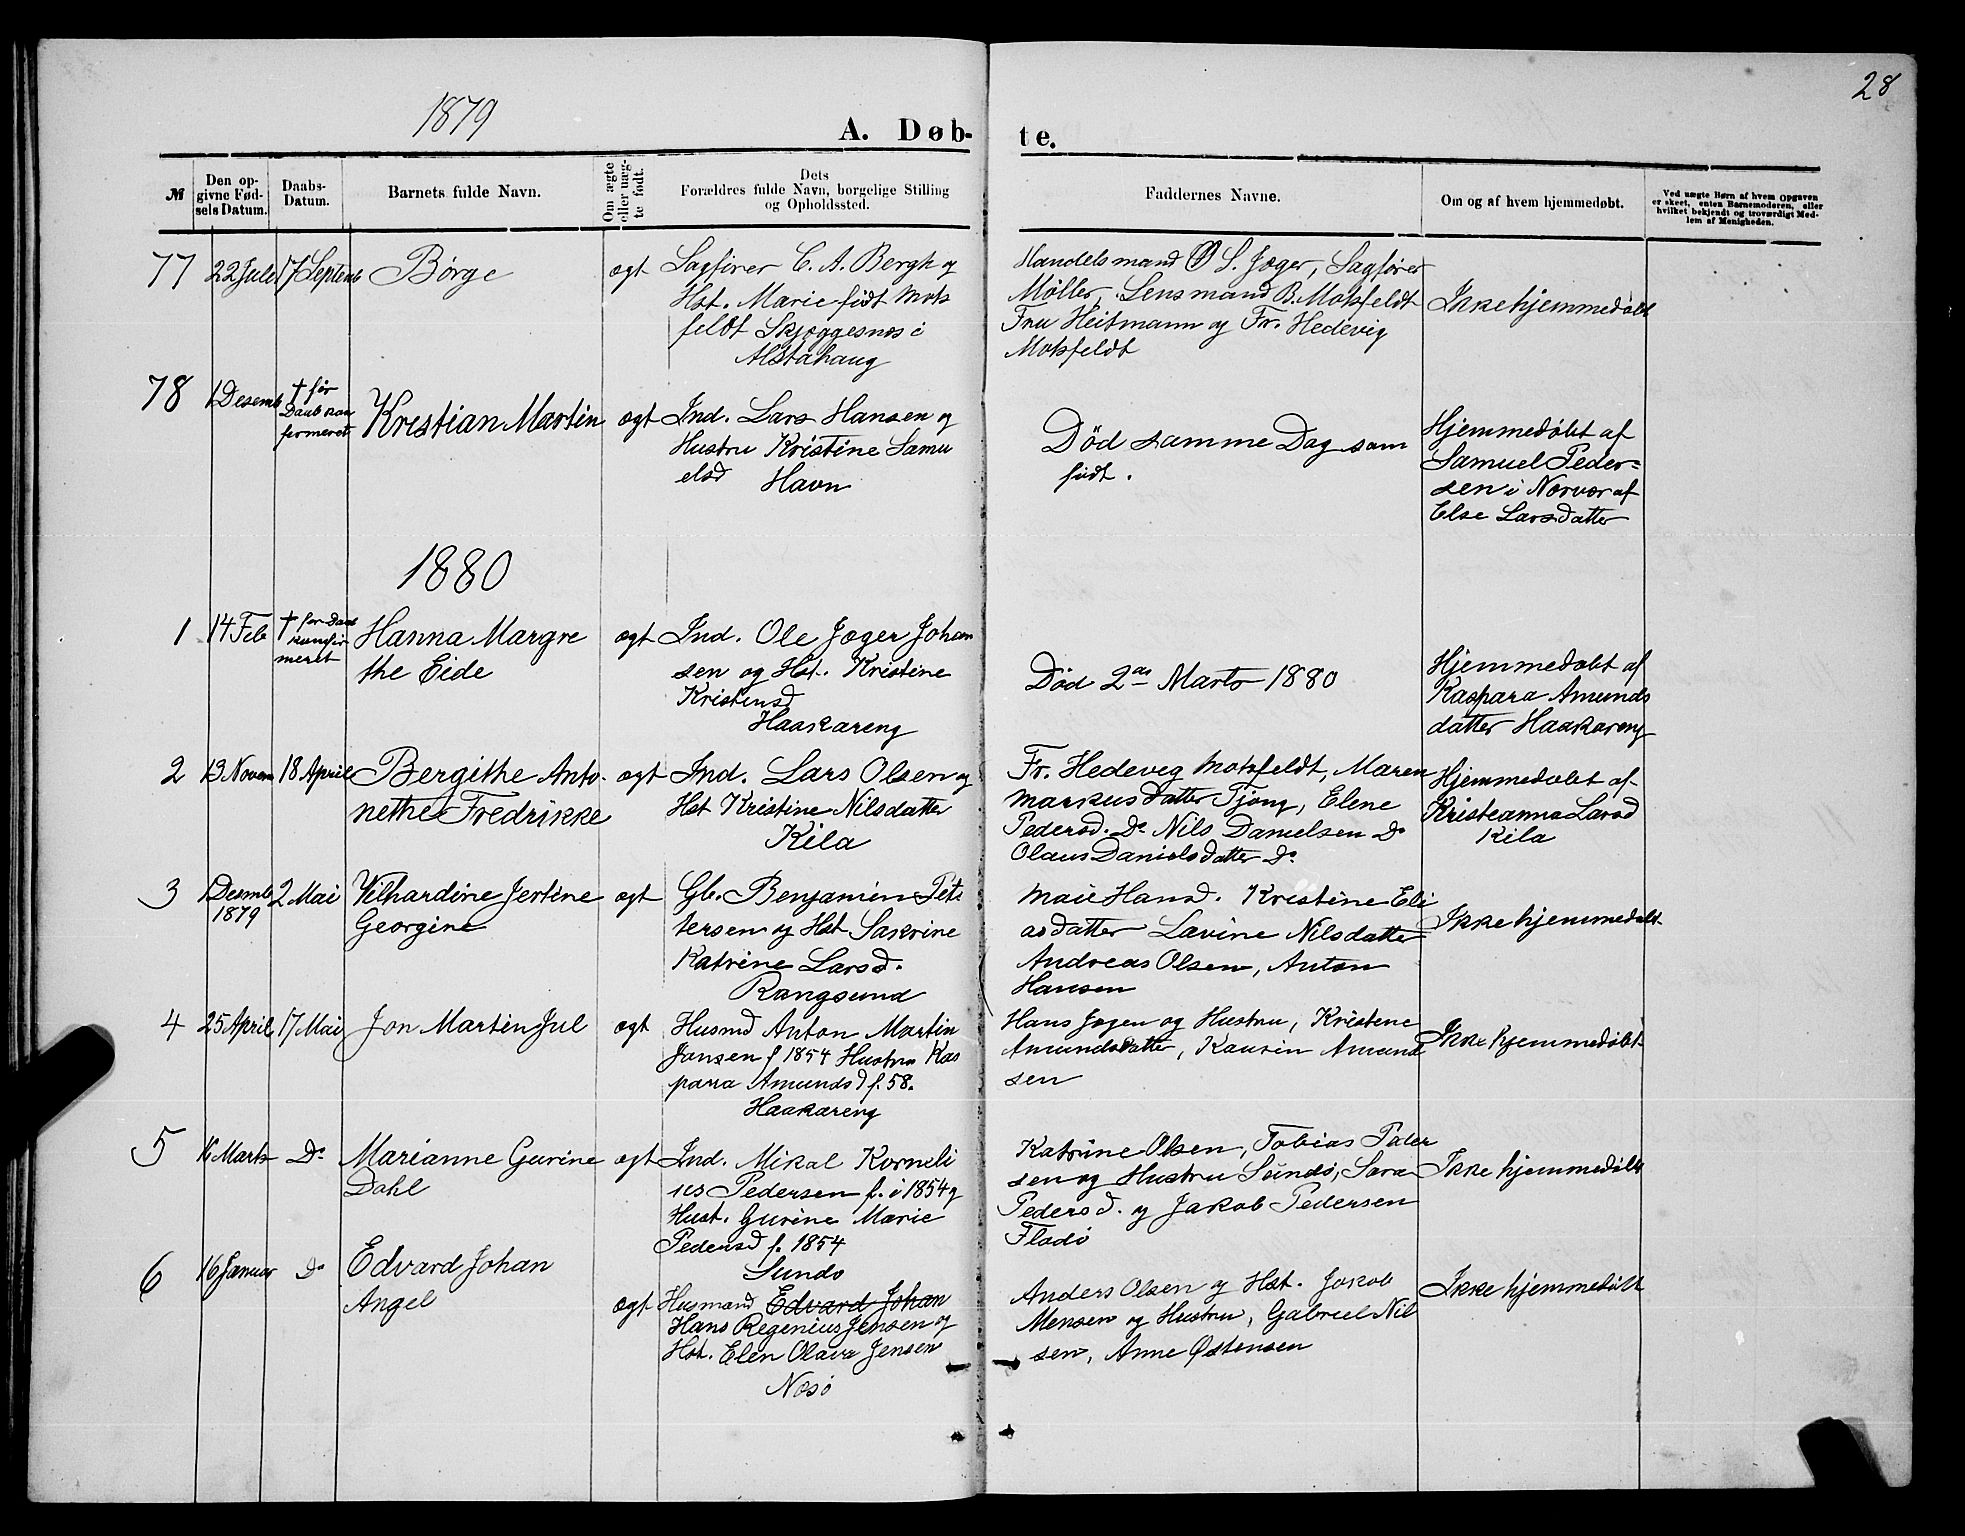 28
1879
A. Døb-
te.
№
Den op-
givne Fød-
sels Datum.
Daabs-
Datum.
Barnets fulde Navn.
Om ægte
eller uæg-
te født.
Dets
Forældres fulde Navn, borgelige Stilling
og Opholdssted.
Faddernes Navne.
Om og af hvem hjemmedøbt.
Ved uægte Børn af hvem Opgaven
er skeet, enten Barnemoderen, eller
hvilket bekjendt og troværdigt Med-
lem af Menigheden.
77
22 Juli
17 Septemb
Børge
ægt
Sagfører C. A. Bergh og
Hst. Marie født Mots
feldt Skjæggesnæs i
Alstahaug
Handelsmand S. Jæger, Sagfører
Møller, Lensmand B. Motsfeldt
Fru Heitmann og Fr. Hedevig
Motsfeldt
Ikke hjemmedøbt
78
1 Desemb
† før
Daab kon
fermeret
Kristian Martin
ægt
Ind. Lars Hansen og
Hustru Kristine Samu
elsd Havn
Død samme Dag som
født.
Hjemmedøbt af
Samuel Peder=
sen i Norvær af
Else Larsdatter
1880
1
14 Feb
† før Daab
konfir
meret
Hanna Margre
the Eide
ægt
Ind. Ole Jæger Johan
sen og Hst. Kristine
Kristensd
Haakareng
Død 2den Marts 1880
Hjemmedøbt af
Kaspara Amunds
datter Haakareng
2
13 Novem
18 April
Bergithe Anto-
nethe Fredrikke
ægt
Ind. Lars Olsen og
Hst Kristine Nilsdatter
Kila
Fr. Hedevig Motsfeldt, Maren
Markusdatter Tjong, Elene
Pedersd. Do Nils Danielsen Do
Olaus Danielsdatter Do
Hjemmedøbt af
Kristeanna Larsd
Kila
3
1 Desmb
1879
2 Mai
Vilhardine Jertine
Georgine
ægt
Gb. Benjamin Pet-
tersen og Hst Sakrine
Katrine Larsd.
Rangsund
Maie Hansd. Kristine Eli
asdatter Lavine Nilsdatter
Andreas Olsen, Anton
Hansen
Ikke hjemmedøbt
4
25 April
17 Mai
Jon Martin Jul
ægt
Husmd Anton Martin
Jansen f 1854 Hustru Kas
para Amundsd f. 58.
Haakareng
Hans Jægen og Hustru, Kristine
Amundsdatter, Kausin Amund
sen
Ikke hjemmedøbt
5
16 Marts
Do
Marianne Gurine
Dahl
ægt
Ind. Mikal Korneli
us Pedersen f. i 1854 og
Hust. Gurine Marie
Pedersd f. 1854
Sundø
Katrine Olsen, Tobias Peder
sen og Hustru Sundø, Sara
Pedersd. og Jakob Pedersen
Flodø
Ikke hjemmedøbt
6
16 Januar
Do
Edvard Johan
Angel
ægt
Husmand Edvard Johan
Hans Regenius Jensen og
Hst. Elen Olava Jensen
Næsø
Anders Olsen og Hst. Jakob
Mensen og Hustru, Gabriel Nil
sen, Anne Østensen
Ikke hjemmedøbt